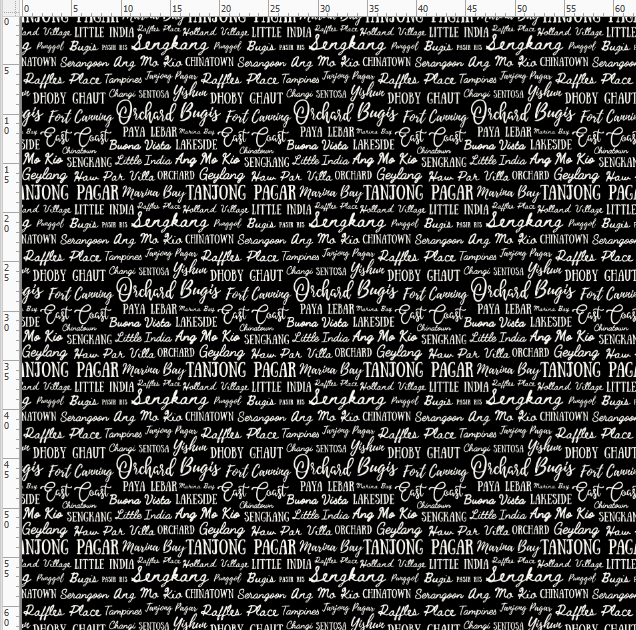 0 5 10 15 20 25 30 35 40 45 50 55 60
and Village LITTLE INDIA Raffles Place Holland Village LITTLE INDIA Raffles Place Holland Village LITTLE INDIA Raffles Place Holland Village
Punggol Bugis PASIR RIS Sengkang Punggol Bugis PASIR RIS Sengkang Punggol Bugis PASIR RIS Sengkang Punggol
NATOWN Serangoon Ang Mo Kio CHINATOWN Serangoon Ang Mo Kio CHINATOWN Serangoon Ang Mo Kio CHINATOWN Serangoon
5 Raffles Place Tampines Tanjong Pagar Raffles Place Tampines Tanjong Pagar Raffles Place Tampines Tanjong Pagar Raffles Place
DHOBY GHAUT Changi SENTOSA Yishun DHOBY GHAUT Changi SENTOSA Yishun DHOBY GHAUT Changi SENTOSA Yishun DHOBY GHAUT
10 gis Fort Canning Orchard Bugis Fort Canning Orchard Bugis Fort Canning Orchard Bugis Fort Canning
Bay East Coast PAYA LEBAR Marina Bay East Coast PAYA LEBAR Marina Bay East Coast PAYA LEBAR Marina Bay East Coast
SIDE Chinatown Buona Vista LAKESIDE Chinatown Buona Vista LAKESIDE Chinatown Buona Vista LAKESIDE Chinatown
Mo Kio SENGKANG Little India Ang Mo Kio SENGKANG Little India Ang Mo Kio SENGKANG Little India Ang Mo Kio SENGKANG
15 Geylang Haw Par Villa ORCHARD Geylang Haw Par Villa ORCHARD Geylang Haw Par Villa ORCHARD Geylang Haw Par
NJONG PAGAR Marina Bay TANJONG PAGAR Marina Bay TANJONG PAGAR Marina Bay TANJONG PA
20 and Village LITTLE INDIA Raffles Place Holland Village LITTLE INDIA Raffles Place Holland Village LITTLE INDIA Raffles Place Holland Village
Punggol Bugis PASIR RIS Sengkang Punggol Bugis PASIR RIS Sengkang Punggol Bugis PASIR RIS Sengkang Punggol
NATOWN Serangoon Ang Mo Kio CHINATOWN Serangoon Ang Mo Kio CHINATOWN Serangoon Ang Mo Kio CHINATOWN Serangoon
Raffles Place Tampines Tanjong Pagar Raffles Place Tampines Tanjong Pagar Raffles Place Tampines Tanjong Pagar Raffles Place
25 DHOBY GHAUT Changi SENTOSA Yishun DHOBY GHAUT Changi SENTOSA Yishun DHOBY GHAUT Changi SENTOSA Yishun DHOBY GHAUT
gis Fort Canning Orchard Bugis Fort Canning Orchard Bugis Fort Canning Orchard Bugis Fort Canning
30 Bay East Coast PAYA LEBAR Marina Bay East Coast PAYA LEBAR Marina Bay East Coast PAYA LEBAR Marina Bay East Coast
SIDE Chinatown Buona Vista LAKESIDE Chinatown Buona Vista LAKESIDE Chinatown Buona Vista LAKESIDE Chinatown
Mo Kio SENGKANG Little India Ang Mo Kio SENGKANG Little India Ang Mo Kio SENGKANG Little India Ang Mo Kio SENGKANG
Geylang Haw Par Villa ORCHARD Geylang Haw Par Villa ORCHARD Geylang Haw Par Villa ORCHARD Geylang Haw Par
35 NJONG PAGAR Marina Bay TANJONG PAGAR Marina Bay TANJONG PAGAR Marina Bay TANJONG PA
and Village LITTLE INDIA Raffles Place Holland Village LITTLE INDIA Raffles Place Holland Village LITTLE INDIA Raffles Place Holland Village
Punggol Bugis PASIR RIS Sengkang Punggol Bugis PASIR RIS Sengkang Punggol Bugis PASIR RIS Sengkang Punggol
40 NATOWN Serangoon Ang Mo Kio CHINATOWN Serangoon Ang Mo Kio CHINATOWN Serangoon Ang Mo Kio CHINATOWN Serangoon
Raffles Place Tampines Tanjong Pagar Raffles Place Tampines Tanjong Pagar Raffles Place Tampines Tanjong Pagar Raffles Place
DHOBY GHAUT Changi SENTOSA Yishun DHOBY GHAUT Changi SENTOSA Yishun DHOBY GHAUT Changi SENTOSA Yishun DHOBY GHAUT
45 gis Fort Canning Orchard Bugis Fort Canning Orchard Bugis Fort Canning Orchard Bugis Fort Canning
Bay East Coast PAYA LEBAR Marina Bay East Coast PAYA LEBAR Marina Bay East Coast PAYA LEBAR Marina Bay East Coast
SIDE Chinatown Buona Vista LAKESIDE Chinatown Buona Vista LAKESIDE Chinatown Buona Vista LAKESIDE Chinatown
50 Mo Kio SENGKANG Little India Ang Mo Kio SENGKANG Little India Ang Mo Kio SENGKANG Little India Ang Mo Kio SENGKANG
Geylang Haw Par Villa ORCHARD Geylang Haw Par Villa ORCHARD Geylang Haw Par Villa ORCHARD Geylang Haw Par
NJONG PAGAR Marina Bay TANJONG PAGAR Marina Bay TANJONG PAGAR Marina Bay TANJONG PA
55 and Village LITTLE INDIA Raffles Place Holland Village LITTLE INDIA Raffles Place Holland Village LITTLE INDIA Raffles Place Holland Village
Punggol Bugis PASIR RIS Sengkang Punggol Bugis PASIR RIS Sengkang Punggol Bugis PASIR RIS Sengkang Punggol
NATOWN Serangoon Ang Mo Kio CHINATOWN Serangoon Ang Mo Kio CHINATOWN Serangoon Ang Mo Kio CHINATOWN Serangoon
60 Raffles Place Tampines Tanjong Pagar Raffles Place Tampines Tanjong Pagar Raffles Place Tampines Tanjong Pagar Raffles Place
DHOBY GHAUT Changi SENTOSA Yishun DHOBY GHAUT Changi SENTOSA Yishun DHOBY GHAUT Changi SENTOSA Yishun DHOBY GHAUT